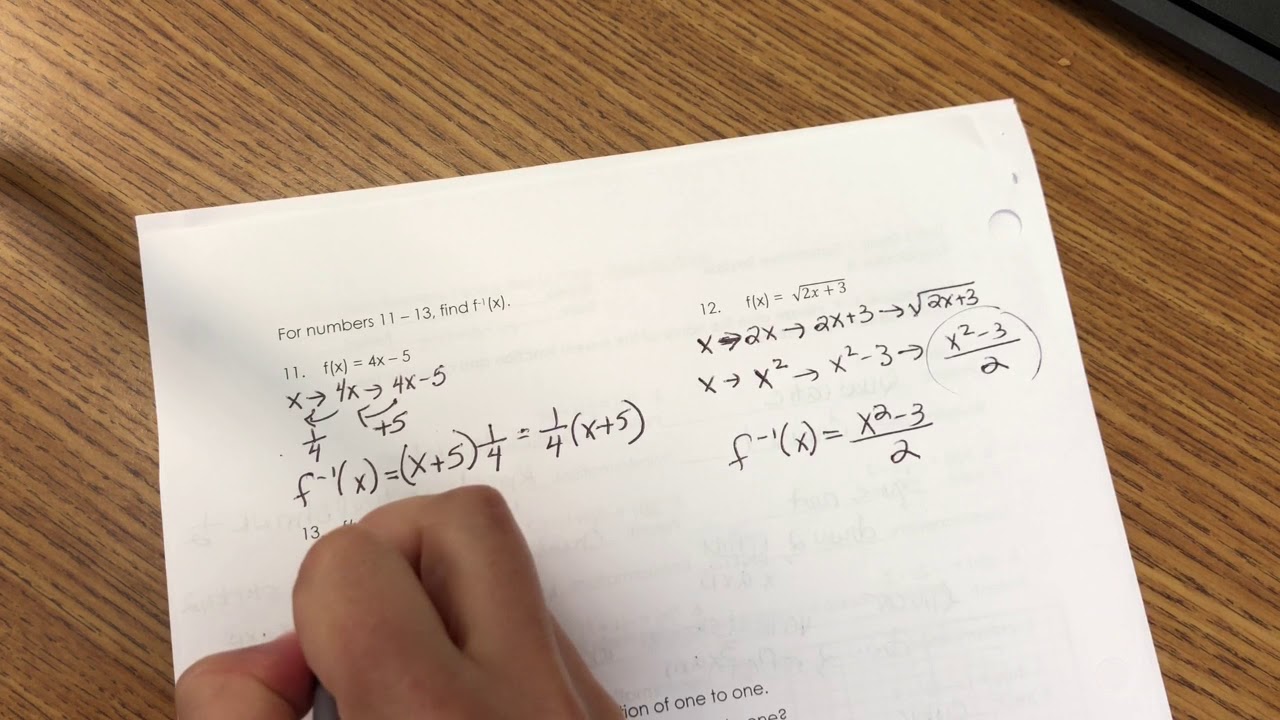 For numbers 11 – 13, find f⁻¹(x).
11. f(x) = 4x – 5
x → 4x → 4x-5
1/4 +5
f⁻¹(x) = (x+5) 1/4 = 1/4 (x+5)
12. f(x) = √(2x + 3)
x → 2x → 2x+3 → √(2x+3)
x → x² → x²-3 → (x²-3)/2
f⁻¹(x) = (x²-3)/2
13
tion of one to one.
one?